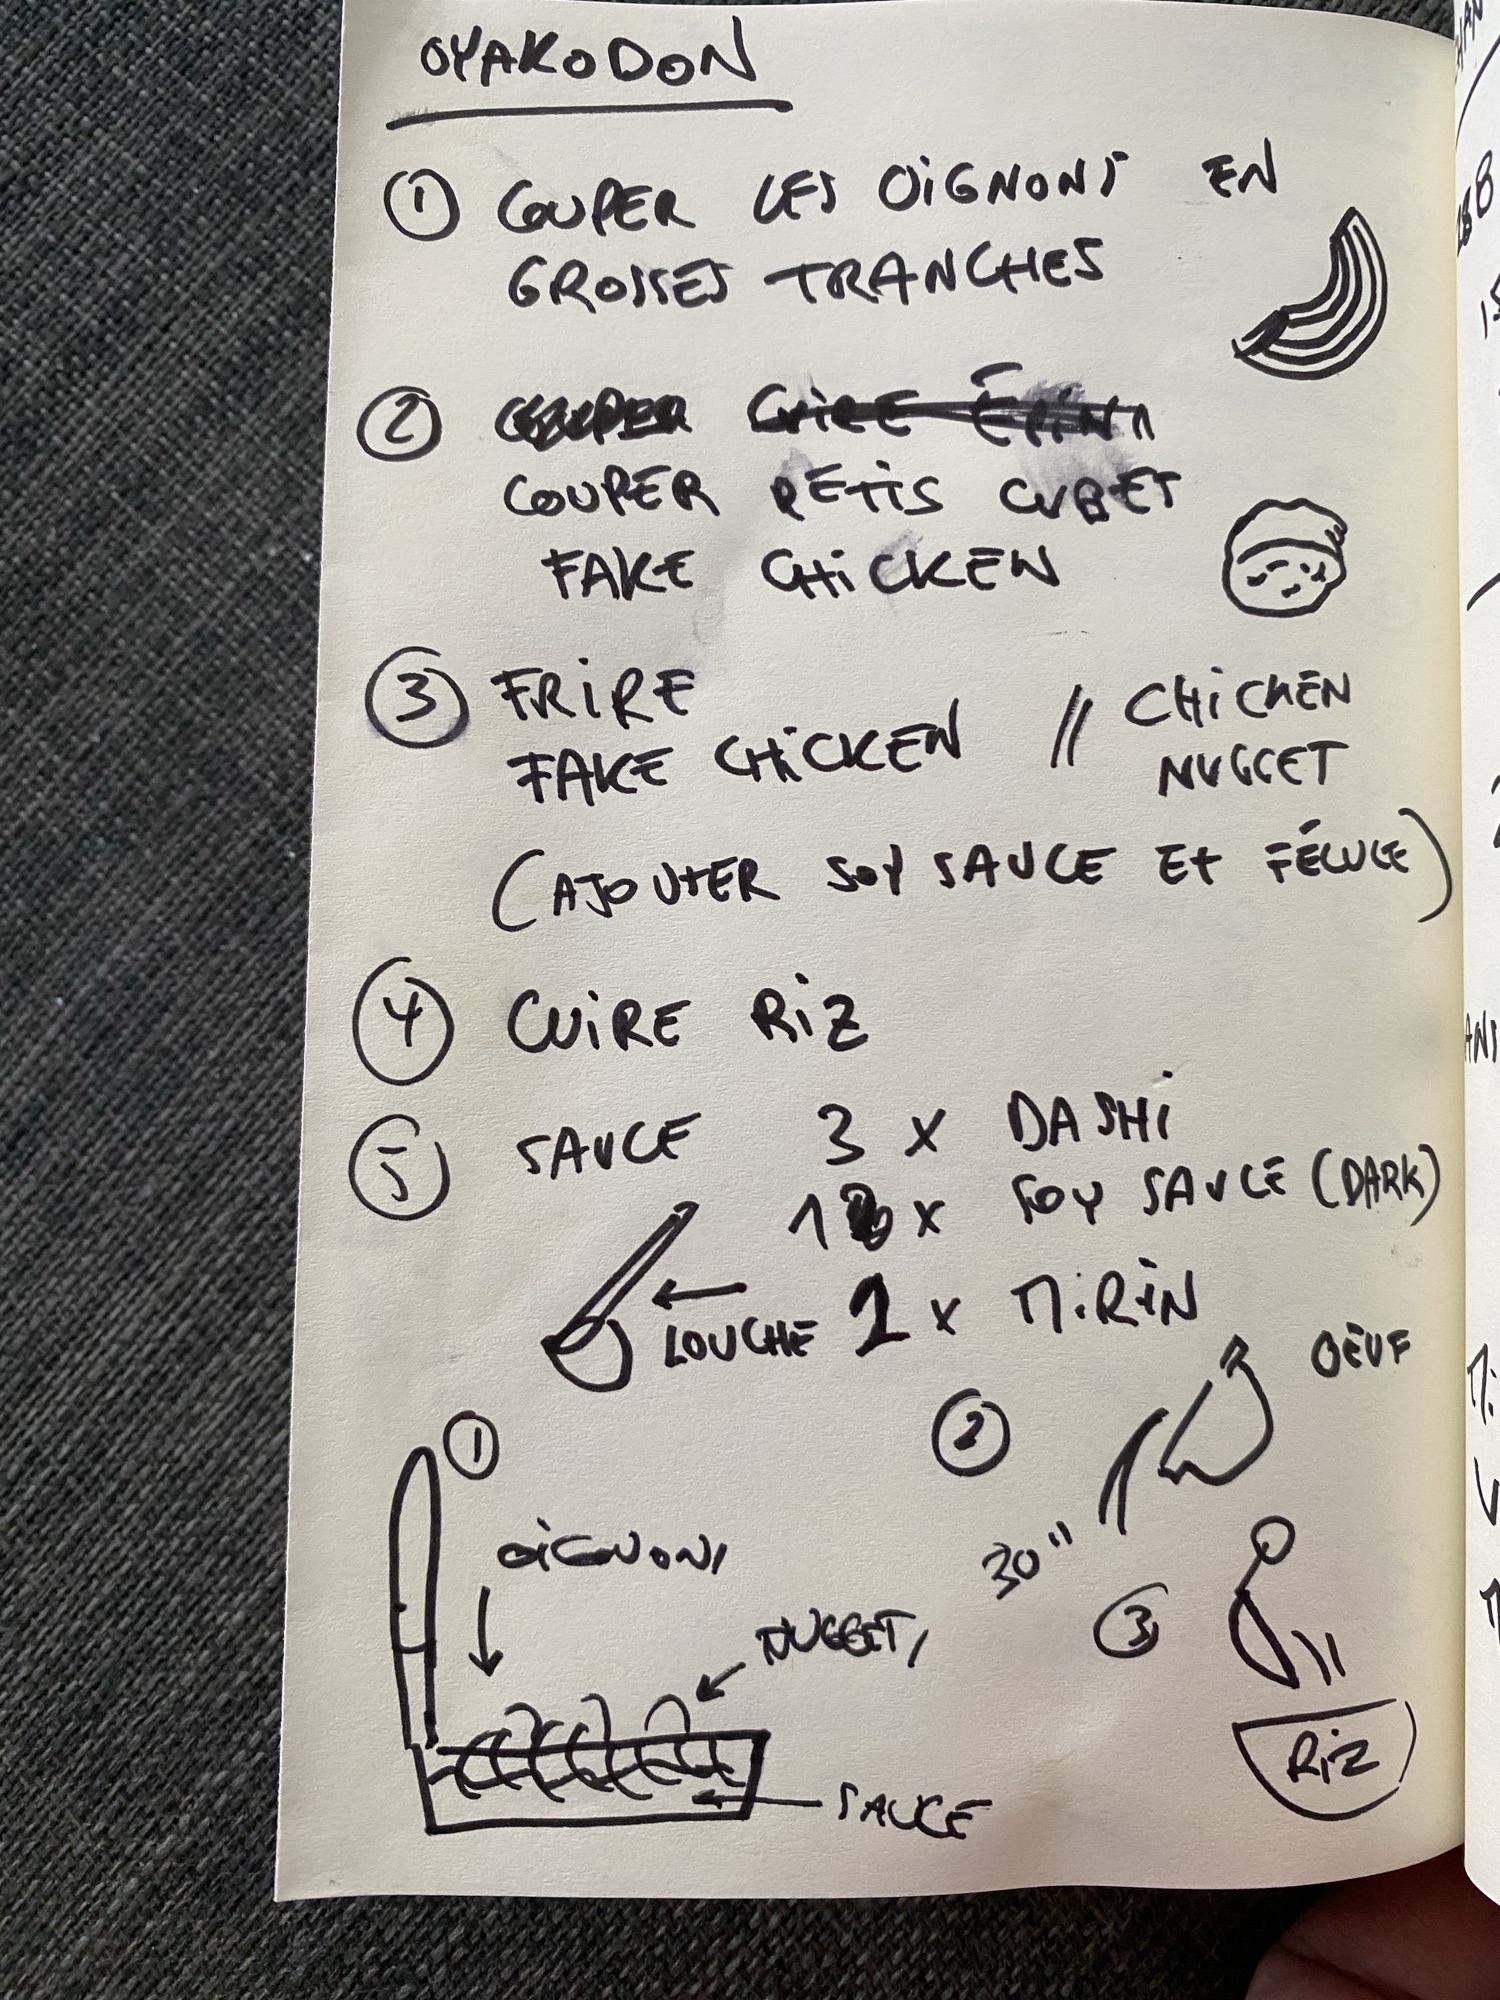 OYAKODON
① COUPER LES OIGNONS EN
GROSSES TRANCHES
②
COUPER PETIS CUBES
FAKE CHICKEN
③ FRIRE
FAKE CHICKEN // CHICKEN
NUGGET
(AJOUTER SOY SAUCE ET FÉCULE)
④ CUIRE RIZ
⑤ SAUCE 3 x DASHI
1 x SOY SAUCE (DARK)
LOUCHE 1 x MIRIN
① OIGNONS
NUGGETS
SAUCE
② OEUF
30"
③
RIZ